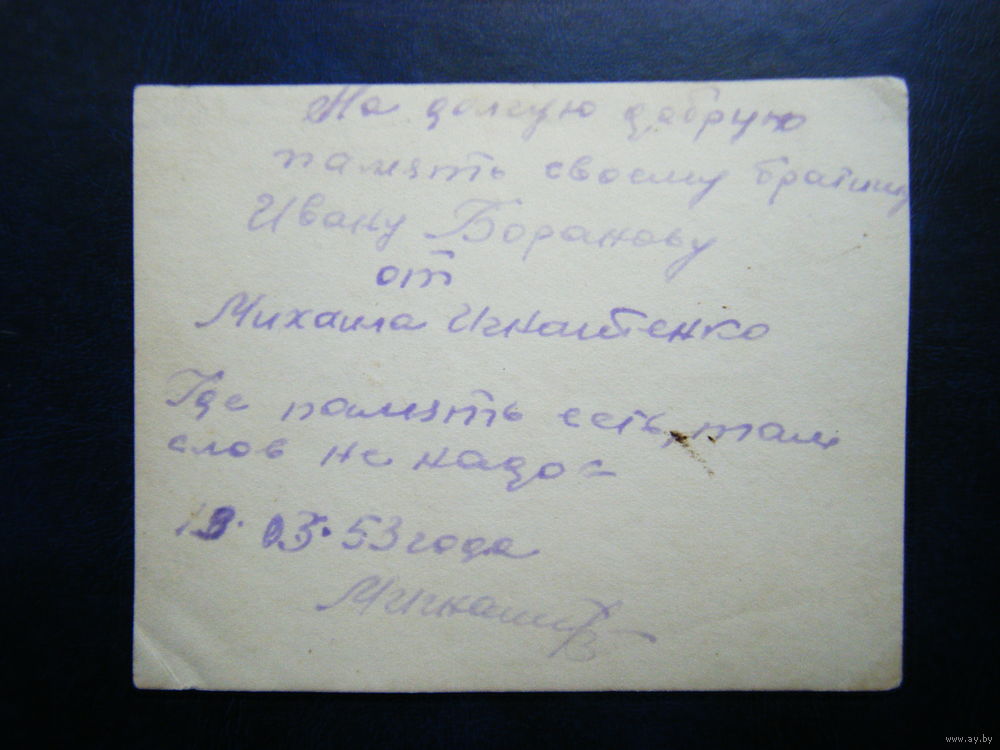 На долгую добрую
память своему братишу
Ивану Боранову
от
Михаила Игнатенко
Где память есть, там
слов не надо -
19.03.53 года
МИгнат
www.ay.by